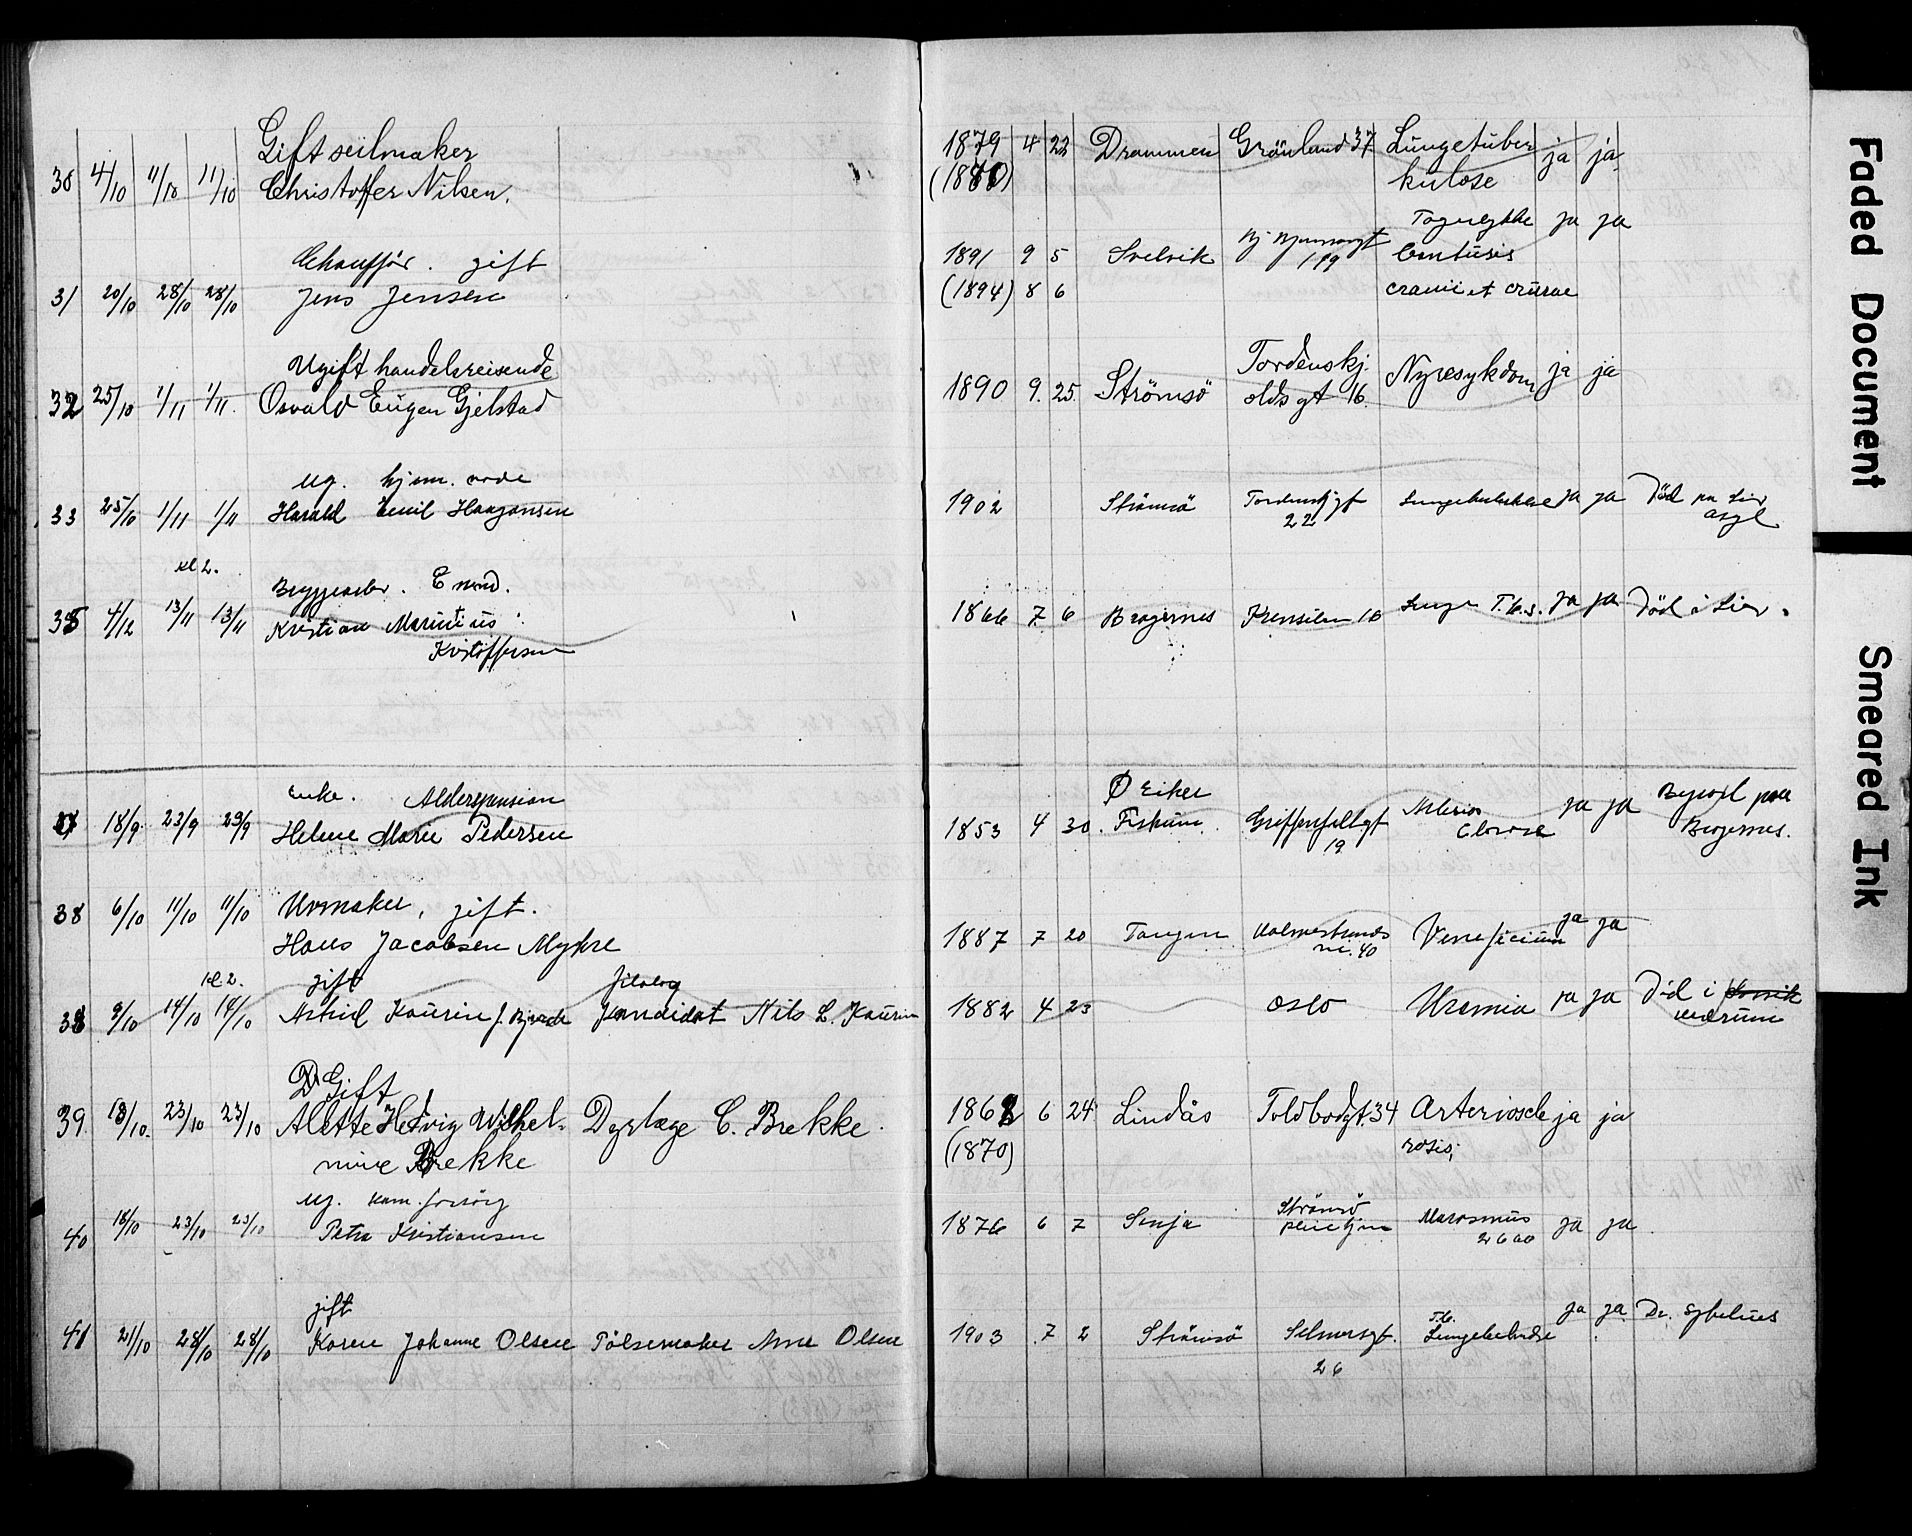 Gift seilmaker 1879 4 22 Drammen Grönland 37 Lungetuber ja ja
30 4/10 11/10 11/10 Christoffer Nilsen. (1880) kulose
Chauffør. gift 1891 9 5 Svelvik 119 Contusis ja ja
31 20/10 28/10 28/10 Jens Jensen (1894) 8 6 cranii et crurae
Ugift handelsreisende Tordenskj.
32 25/10 1/11 1/11. Osvald Eugen Gjelstad 1890 9. 25. Strömsö olds gt 16. Nyresykdom ja ja
ug. hjem.
33 25/10 1/11 1/11 Harald Emil Haagansen 1902 Strömsö Tordenskjgt 22 ja ja Död paa Lier asyl
kl 2.
Bryggearb. E mnd.
35 4/12 13/11 13/11 Kristian Marintius Kristoffersen 1866 7 6 Bragernes 10 Lunge T.b.s. ja ja Död i Lier.
Enke. Alderspension Ø Eiker
18/9. 23/9 23/9 Helene Marie Pedersen 1853 4 30. Fiskum. Griffenfeldtgt 19 ja ja paa Bragernes.
38 6/10 11/10 11/10 Urmaker, gift.
Hans Jacobsen Myhre 1887 7 20 Tangen Holmestrands 40 Veneficium ja ja
kl 2. gift filolog
38 9/10 14/10 14/10 Astrid Kaurin f. Kandidat Nils L. Kaurin 1882 4 23 Oslo Uremia ja ja Død i
Gift
39. 18/10. 23/10 23/10 Alette Hedvig Wilhel- Dyrlæge C. Brekke. 1868 6 24 Lindås Toldbodgt. 34 Arterioscle ja ja
mine Brekke (1870) rosis;
ug. kom. forsörg Strömsö
40 18/10 23/10 23/10 Petra Kristiansen 1876 6 7 Senja pleiehjem Marasmus ja ja
gift Tb.
41 21/10 28/10 28/10 Karen Johanne Olsen Pölsemaker Arne Olsen 1903 7 2 Strömsö Selmersgt. 26 ja ja Dr. Sybelius
Faded Document
Smeared Ink